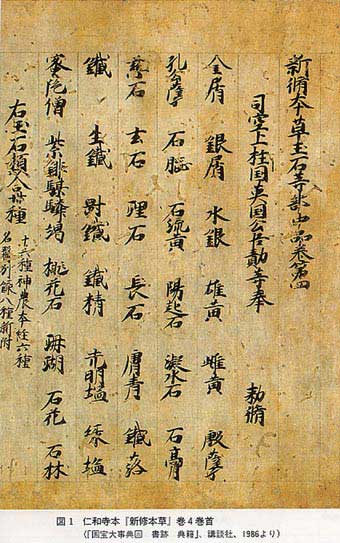 新脩本草玉石等部中品卷第四
司空上柱国英国公臣勣等奉 勅脩
金屑 銀屑 水銀 雄黄 雌黄 殷孽
孔公孽 石脳 石流黄 陽起石 凝水石 石膏
慈石 玄石 理石 長石 膚青 鐵落
鐵 生鐵 剛鐵 鐵精 光明塩 緑塩
蜜陀僧 紫鉚騏驎竭 桃花石 珊瑚 石花 石林
右玉石類合卅種
十六種神農本経六種
名醫別録八種新附
図1 仁和寺本『新修本草』巻4巻首
(『国宝大事典 書跡 典籍』、講談社、1986より)